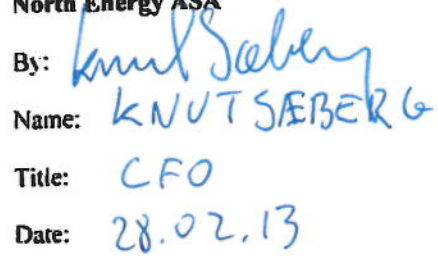 North Energy ASA
By: Knut Sæberg
Name: KNUT SÆBERG
Title: CFO
Date: 28.02.13